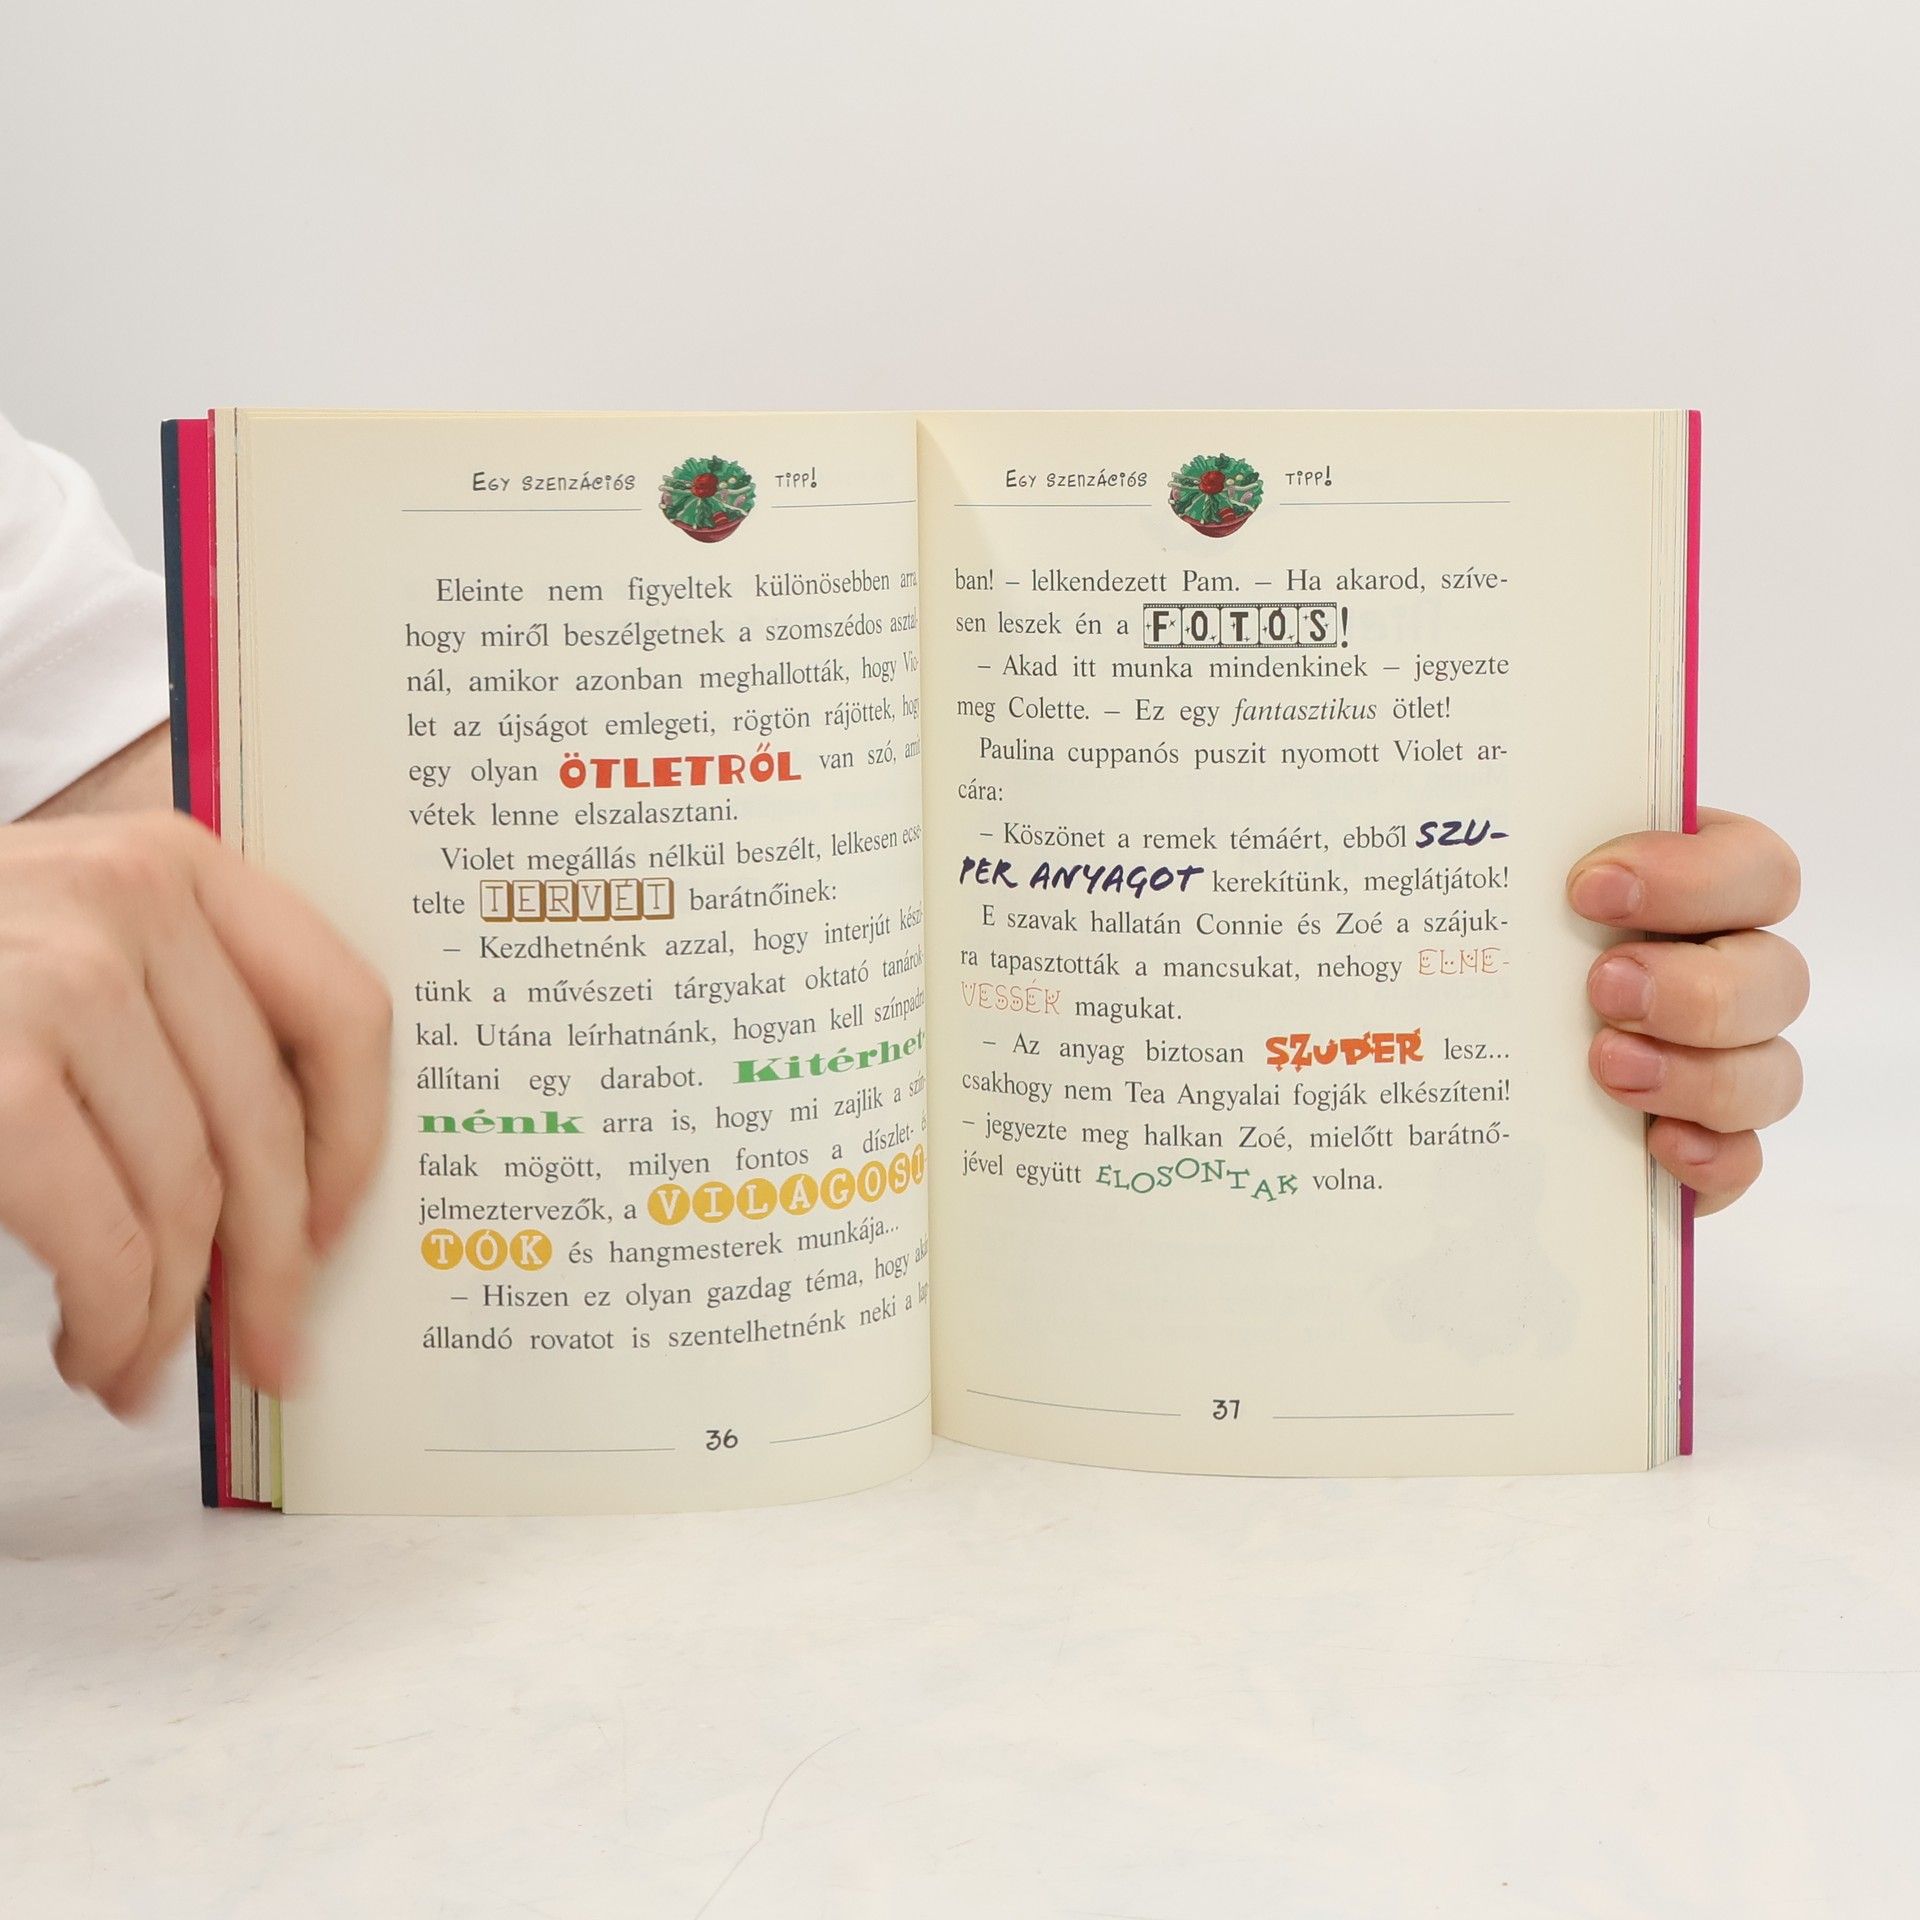 Egy szenzációs tipp!
Eleinte nem figyeltek különösebben arra,
hogy miről beszélgetnek a szomszédos asztal-
nál, amikor azonban meghallották, hogy Vio-
let az újságot emlegeti, rögtön rájöttek, hogy
egy olyan ÖTLETRŐL van szó, amit
vétek lenne elszalasztani.
Violet megállás nélkül beszélt, lelkesen ecse-
telte TERVÉT barátnőinek:
– Kezdhetnénk azzal, hogy interjút készí-
tünk a művészeti tárgyakat oktató tanárok-
kal. Utána leírhatnánk, hogyan kell színpadra
állítani egy darabot. Kitérhet-
nénk arra is, hogy mi zajlik a szín-
falak mögött, milyen fontos a díszlet- és
jelmeztervezők, a VILÁGOSÍ-
TÓK és hangmesterek munkája...
– Hiszen ez olyan gazdag téma, hogy akár
állandó rovatot is szentelhetnénk neki a lap-
36
Egy szenzációs tipp!
ban! – lelkendezett Pam. – Ha akarod, szíve-
sen leszek én a FOTÓS!
– Akad itt munka mindenkinek – jegyezte
meg Colette. – Ez egy fantasztikus ötlet!
Paulina cuppanós puszit nyomott Violet ar-
cára:
– Köszönet a remek témáért, ebből SZU-
PER ANYAGOT kerekítünk, meglátjátok!
E szavak hallatán Connie és Zoé a szájuk-
ra tapasztották a mancsukat, nehogy ELNE-
VESSÉK magukat.
– Az anyag biztosan SZUPER lesz...
csakhogy nem Tea Angyalai fogják elkészíteni!
– jegyezte meg halkan Zoé, mielőtt barátnő-
jével együtt ELOSONTAK volna.
37